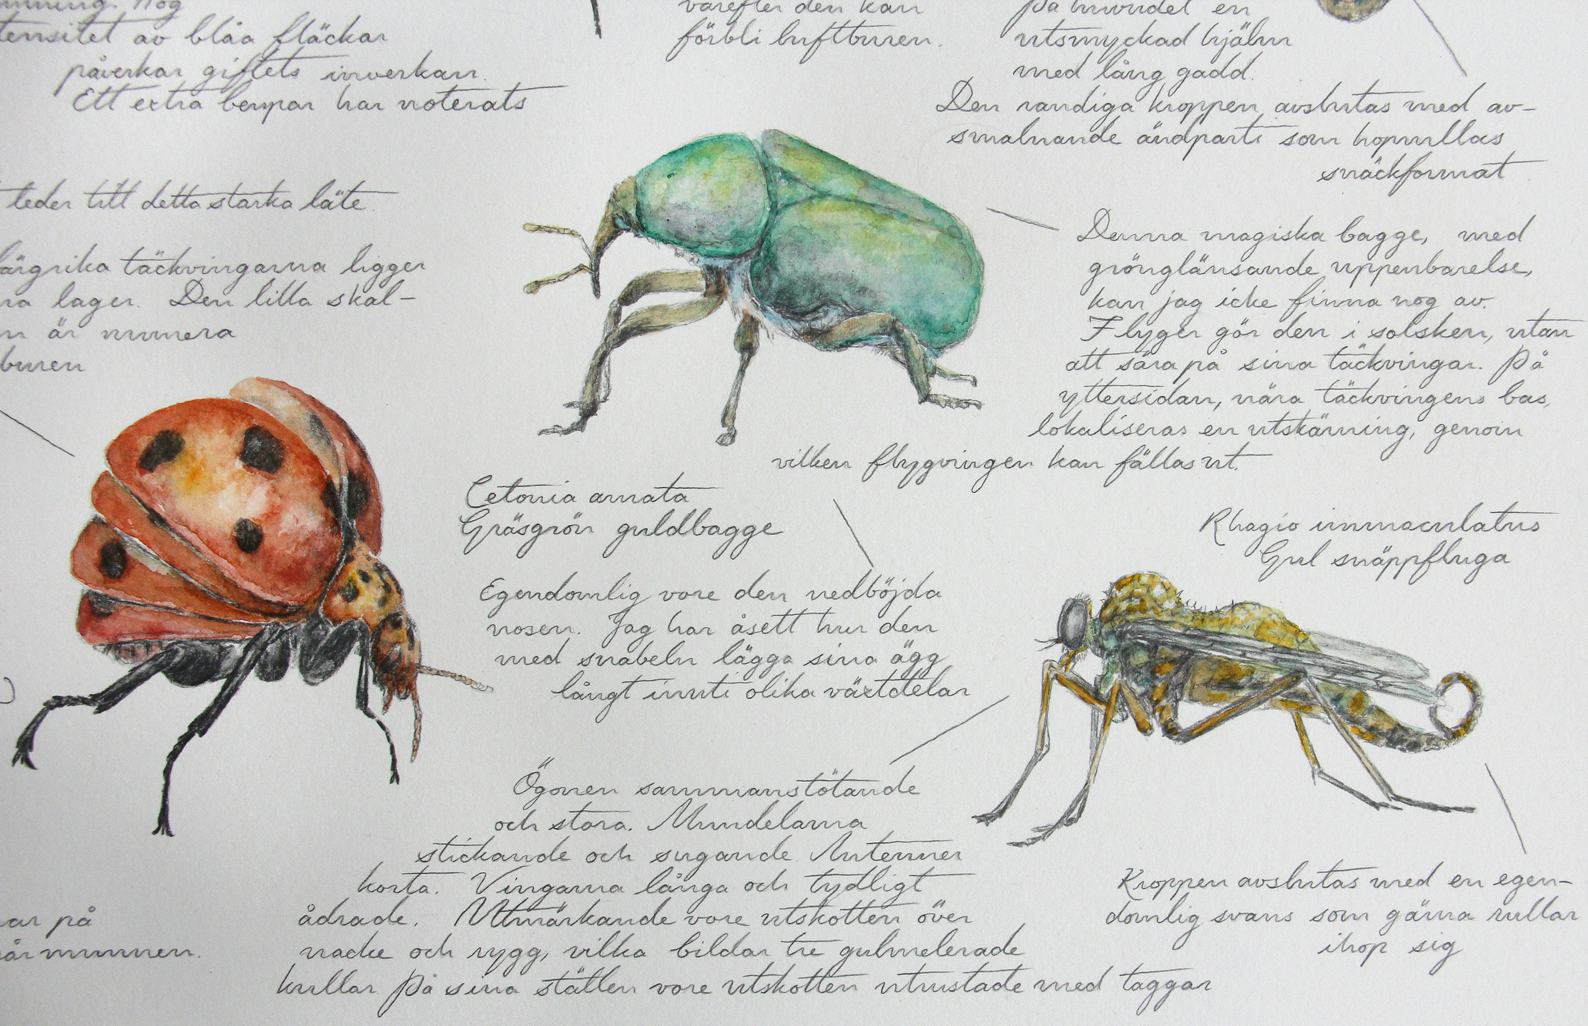 tensitet av blåa fläckar
påverkar giftets inverkan.
Ett extra benpar har noterats
varefter den kan
förbli luftburen.
på huvudet en
utsmyckad hjälm
med lång gadd.
Den randiga kroppen avslutas med av-
smalnande ändparti som hoprullas
snäckformat
leder till detta starka läte.
färgrika täckvingarna ligger
lager. Den lilla skal-
är numera
buren
Denna magiska bagge, med
grönglänsande uppenbarelse,
kan jag icke finna nog av.
Flyger gör den i solsken, utan
att sära på sina täckvingar. På
yttersidan, nära täckvingens bas,
lokaliseras en utskärning, genom
vilken flygvingen kan fällas ut.
Cetonia aurata
Gräsgrön guldbagge
Egendomlig vore den nedböjda
nosen. Jag har åsett hur den
med snabeln lägga sina ägg
långt inuti olika växtdelar
Rhagio immaculatus
Gul snäppfluga
Ögonen sammanstötande
och stora. Mundelarna
stickande och sugande. Antenner
korta. Vingarna långa och tydligt
ådrade. Utmärkande vore utskotten över
nacke och rygg, vilka bildar tre gulmelerade
kullar På sina ställen vore utskotten utrustade med taggar
Kroppen avslutas med en egen-
domlig svans som gärna rullar
ihop sig
på
munnen.